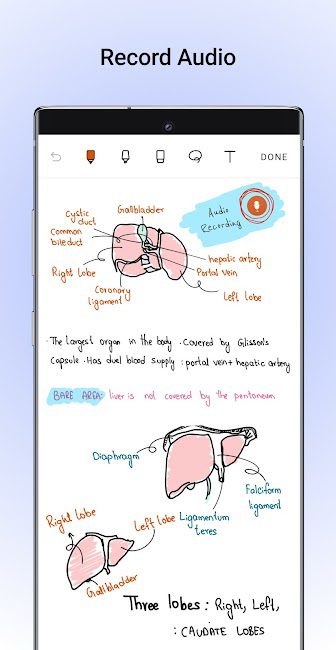 Record Audio
T DONE
Gallbladder
Cystic
duct
Common
bile duct
Right lobe
Coronary
ligament
Audio
Recording
hepatic artery
Portal vein
Left lobe
· The largest organ in the body · Covered by Glisson's
Capsule · Has duel blood supply : portal vein + hepatic artery
BARE AREA: liver is not covered by the peritoneum
Diaphragm
Falciform
ligament
Ligamentum
teres
Right lobe
Left lobe
Gallbladder
Three lobes : Right, Left,
: CAUDATE LOBES